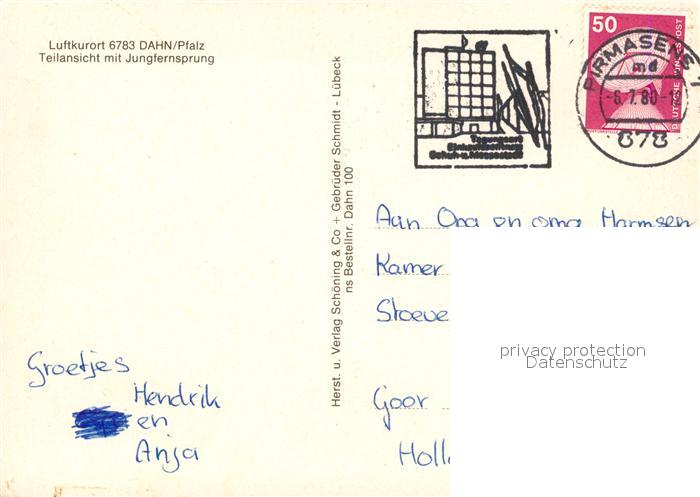 Luftkurort 6783 DAHN/Pfalz
Teilansicht mit Jungfernsprung
50
DEUTSCHE BUNDESPOST
PIRMASENS 1
md
-8.7.80-
678
Tagungsort
Einkaufszentrum
Schuh- u. Messestadt
Herst. u. Verlag Schöning & Co + Gebrüder Schmidt - Lübeck
ns Bestellnr. Dahn 100
Aan Opa en oma Harmsen
Kamer
Stoeve
Goor
Holl
privacy protection
Datenschutz
Groetjes
Hendrik
en
Anja